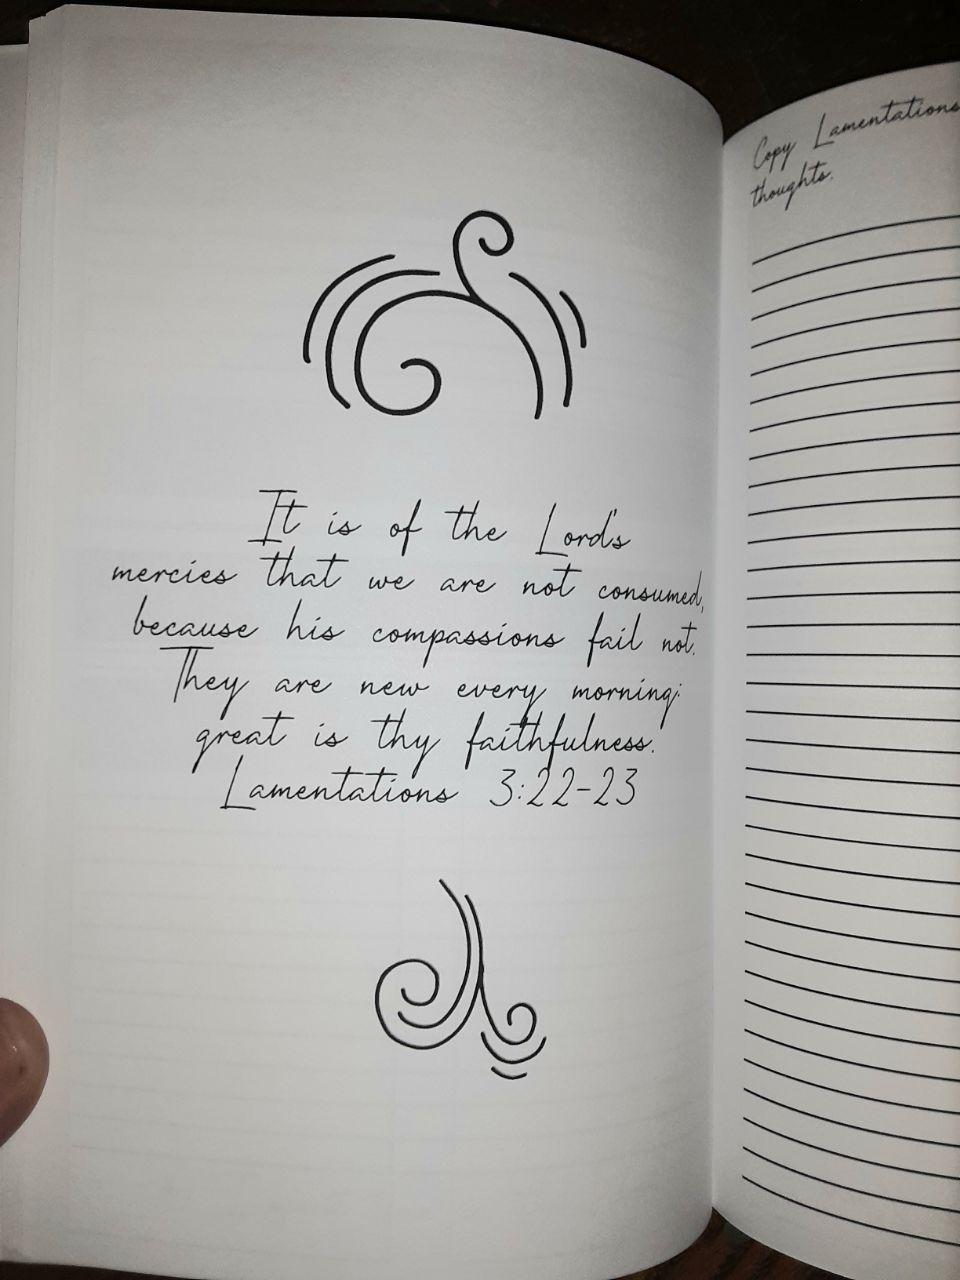 It is of the Lord's
mercies that we are not consumed,
because his compassions fail not.
They are new every morning:
great is thy faithfulness.
Lamentations 3:22-23
Copy Lamentations
thoughts.